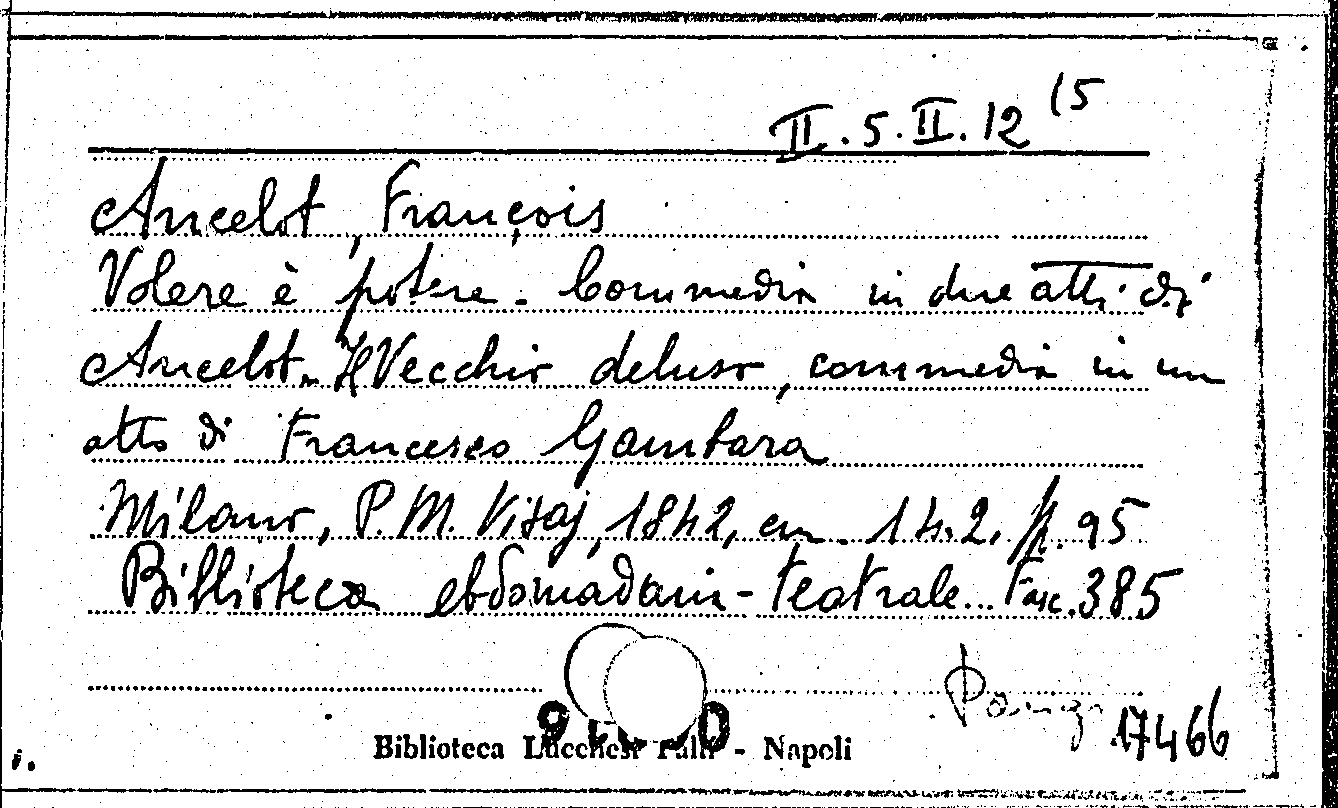 II.5.II.12 15
Ancelot, François
Volere è potere. Commedia in due atti di
Ancelot. Il Vecchio deluso, commedia in un
atto di Francesco Gambara
Milano, P. M. Visaj, 1842, cm. 14.2, p. 95
Biblioteca ebdomadaria-teatrale... Fasc. 385
17466
Biblioteca Lucchesi Palli - Napoli
i.